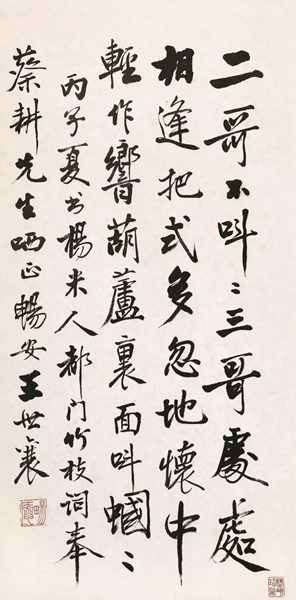 二哥不叫〻三哥處處
相逢把式多忽地懷中
輕作響葫蘆裏面叫蟈〻
丙子夏书楊米人都门竹枝詞奉
蔡耕先生哂正暢安王世襄